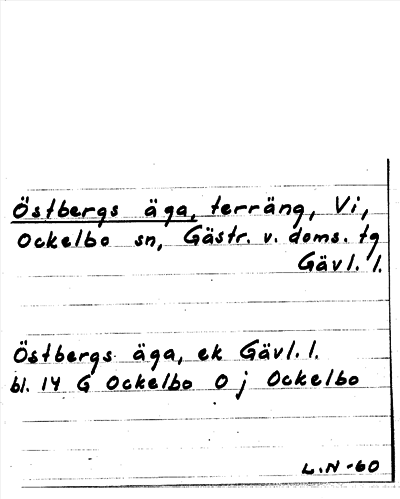 Östbergs äga, terräng, Vi,
Ockelbo sn, Gästr. v. doms. tg
Gävl. l.
Östbergs äga, ek Gävl. l.
bl. 14 G Ockelbo 0 j Ockelbo
L.N -60